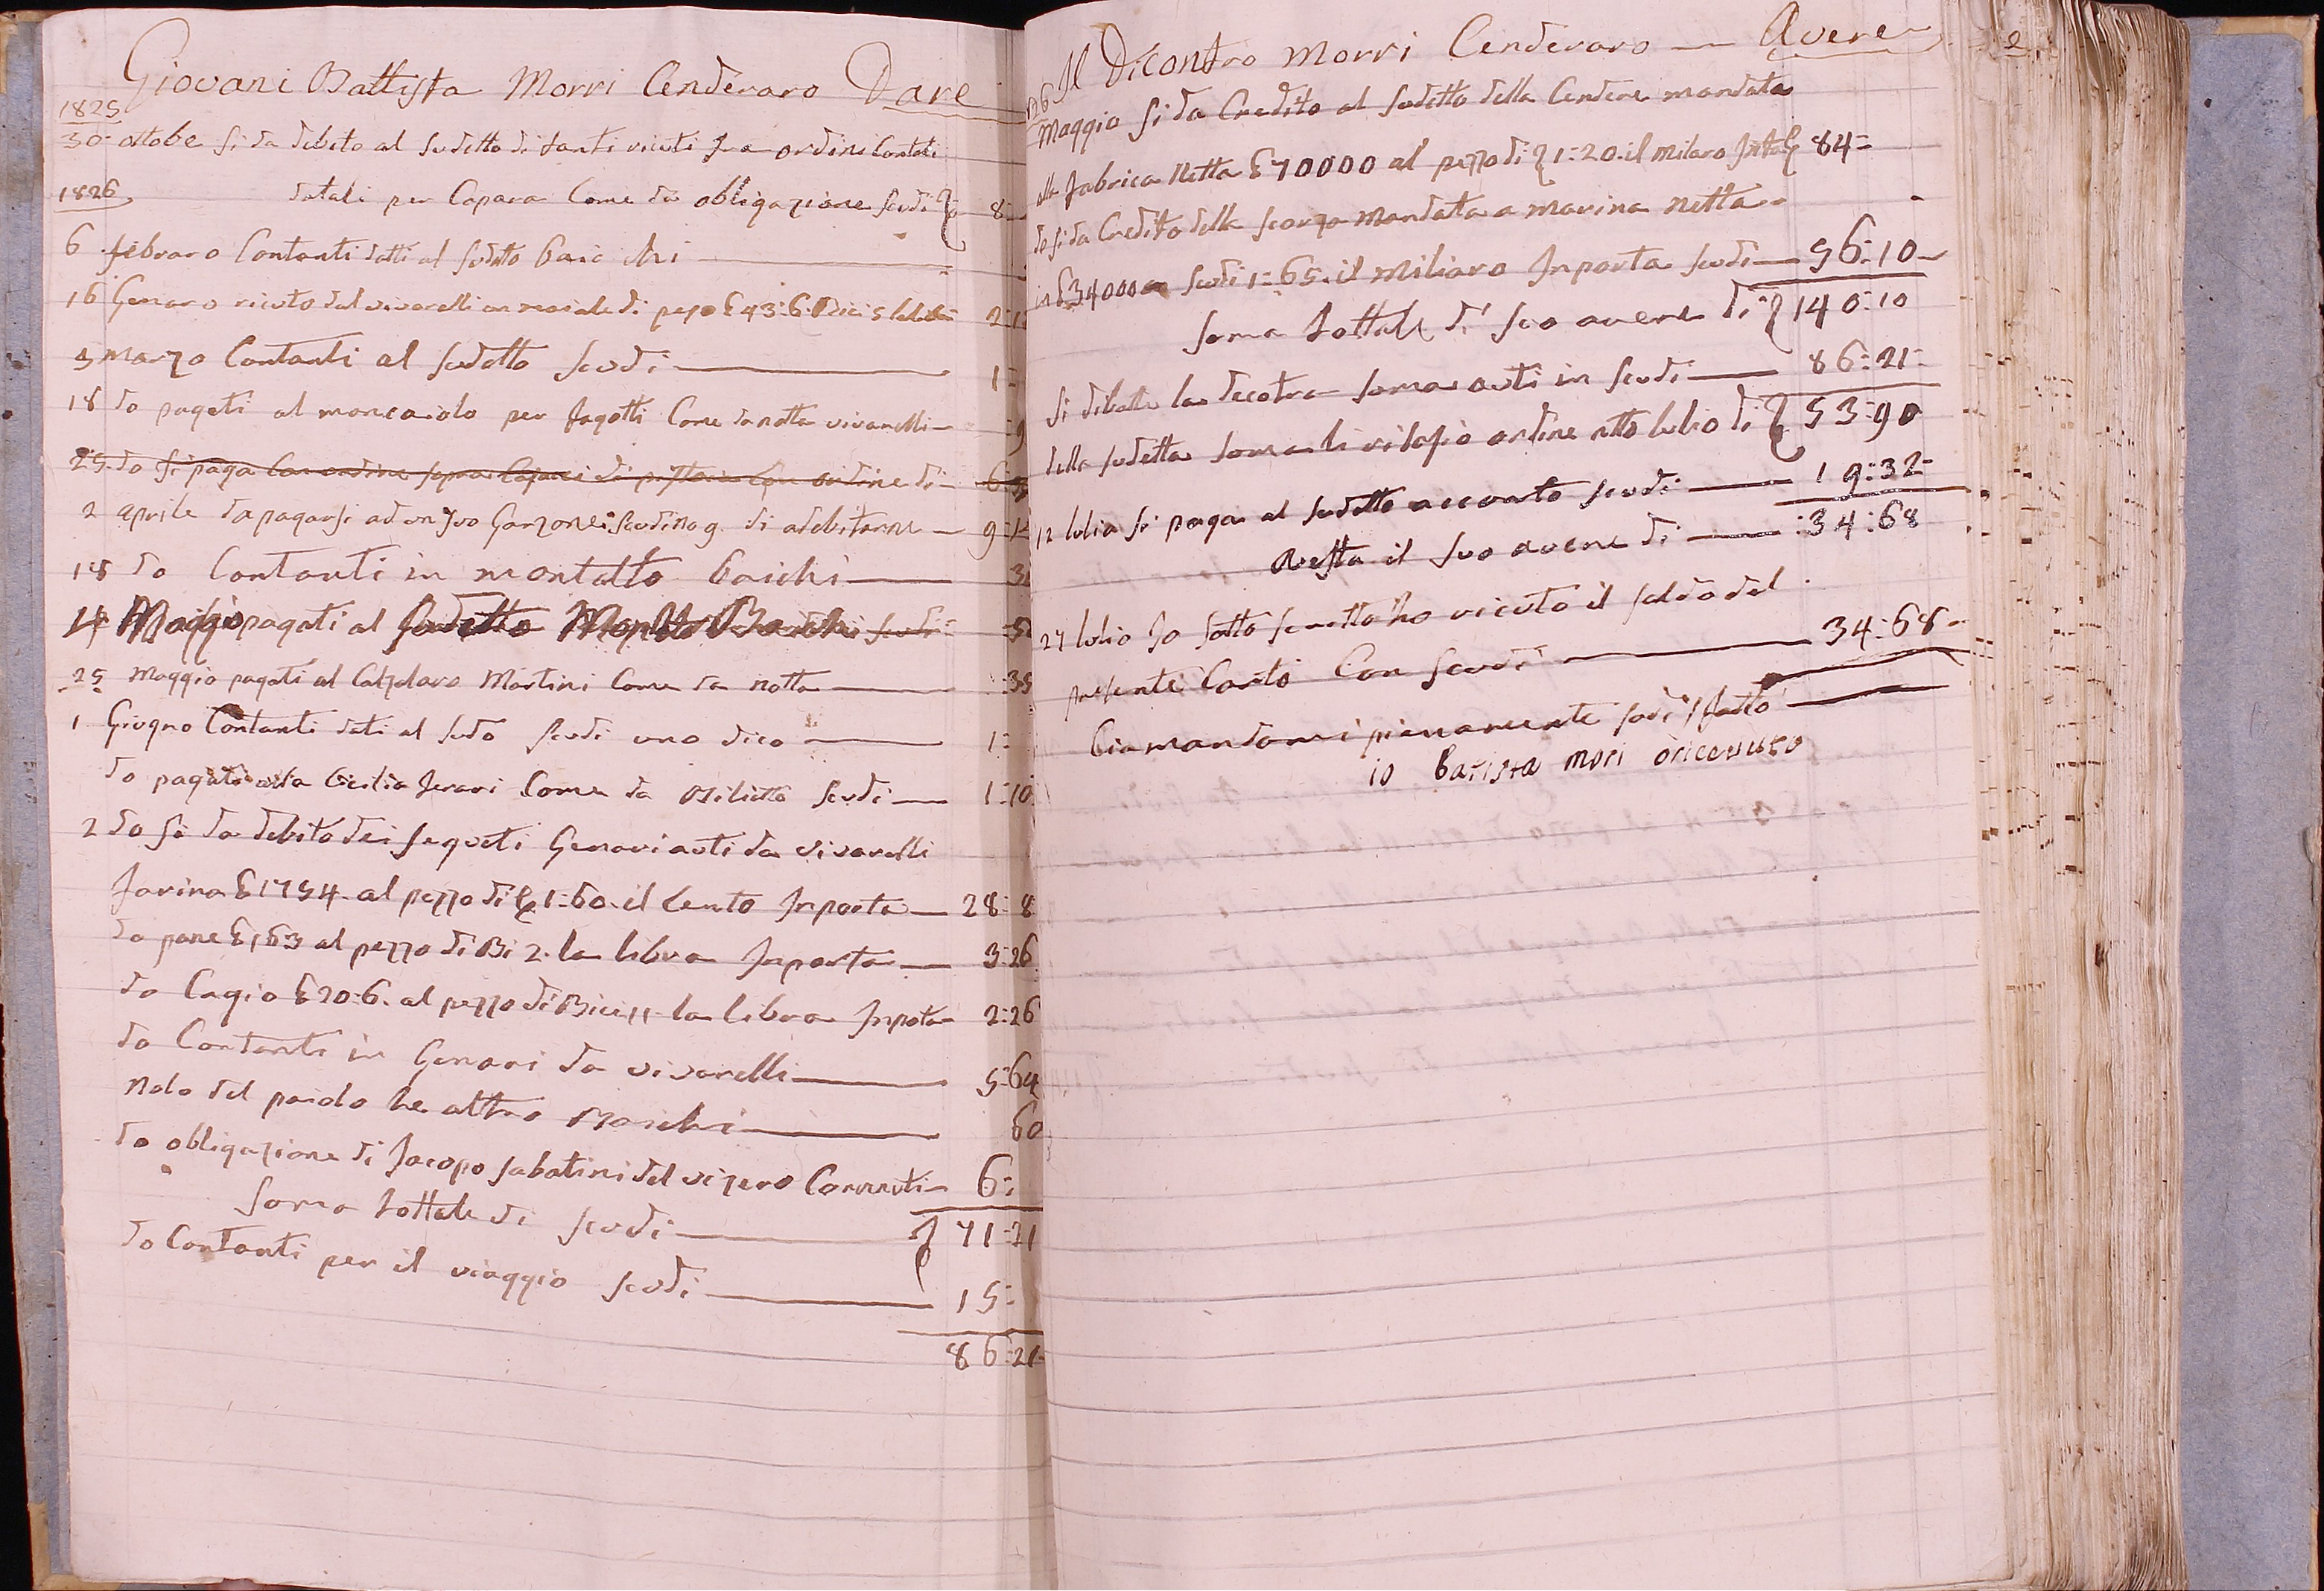 Giovani Battista Morri Cenderaro Dare
1825
30 ottobe si da debito al sudetto di tanti riceuti fra ordini Contati
1826
datali per Capara Come da obligazione scudi 8=
6 febraro Contanti datti al sudetto baiochi
16 Genaro riceuto dal vivarelli un maiale di pezo £ 43:6
3 Marzo Contanti al sudetto scudi 1=
18 do pagati al moncaiolo per fagotti Come da notta vivarelli
25 do si paga Con ordine di 6
2 aprile da pagarsi ad un suo Garzone scudi no 9. di adebitarne 9
18 do Contanti in montalto baichi
14 Maggio pagati al sudetto scudi
25 Maggio pagati al Calzolaro Martini Come da notta 35
1 Giugno Contanti dati al sudo scudi uno dico 1=
do pagati alla Cicilia ferari Come da Biliette scudi 1=10
2 do si da debito dei sequeti Generi auti da vivarelli
farina £ 1754 al pezzo di 1=60 il Cento Inporta 28=8
do pane £ 163 al pezzo di Bi 2 la libra Inporta 3=26
do Cagio £ 20:6 al pezzo di Bici 11 la libra Inpota 2=26
do Contanti in Generi da vivarelli 5=64
Nolo del paiolo he altro Baichi 60
do obligazione di Jacopo sabatini del 6=
Soma tottale di scudi 71=21
do Contanti per il viaggio scudi 15=
86=21
Il Dicontro Morri Cenderaro Avere
1826
Maggio si da Credito al sudetto della Cendere mandata
alla fabrica Netta £ 70000 al pezzo di 1=20 il Milaro 84=
do si da Credito della scorza Mandata a marina netta
in £ 34000 a scudi 1=65 il Miliaro Inporta scudi 56=10
soma tottale di suo avere di 140=10
si dibatte la decotra soma auti in scudi 86=21
della sudetta soma li rilasio ordine lulio di 53=90
12 lulio si paga al sudetto acconto scudi 19=32
Resta il suo avere di 34=68
27 lulio Io sotto scritto ho riceuto il saldo del
presente Conto Con scudi 34=68
Ciamandomi pienamente sodisfatto
io Batista Mori o ricevuto